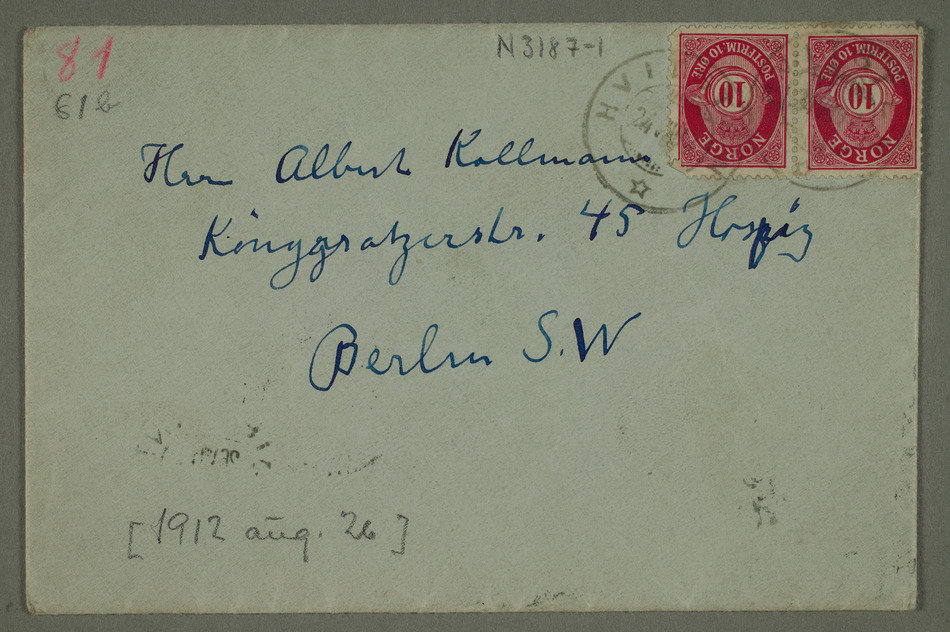 81
N3187-1
61b
HVI
24
NORGE POSTFRIM. 10 ØRE 10
NORGE POSTFRIM. 10 ØRE 10
Herr Albert Kollmann
Könggratzerstr. 45 Hospiz
Berlin S.W
[1912 aug. 26]